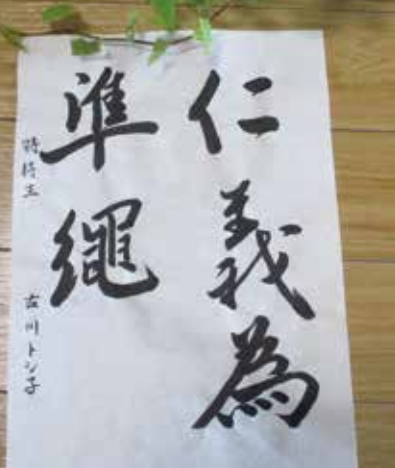 仁義為
準繩
特待生 古川トシ子